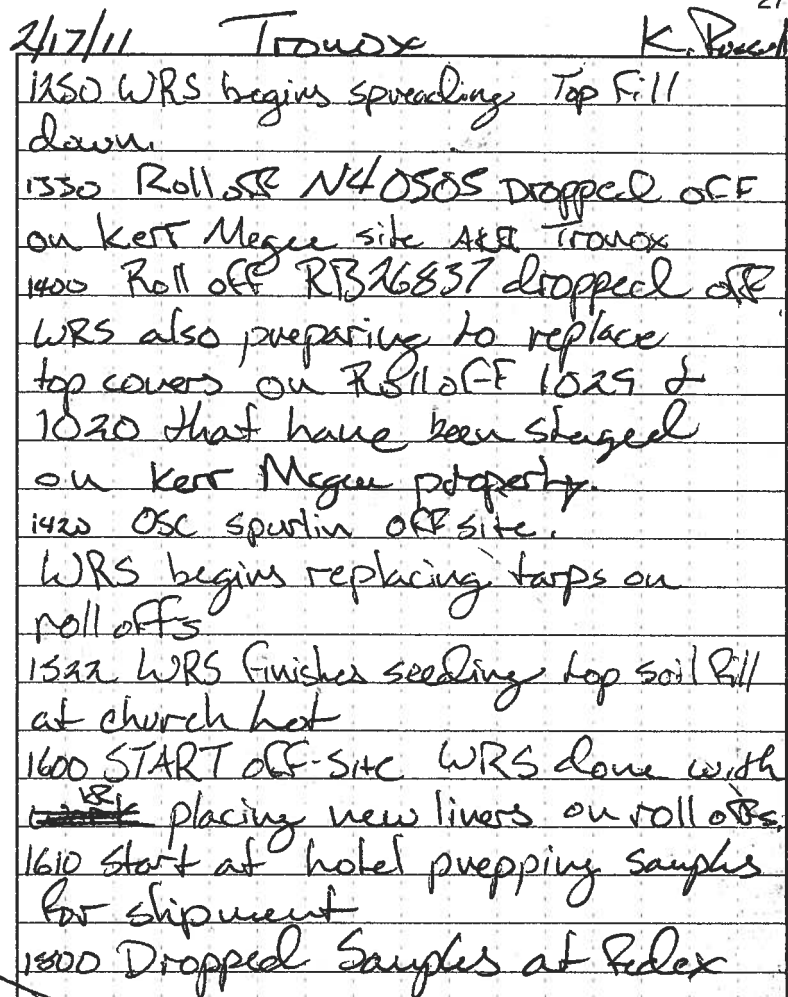 27
2/17/11 Tronox K. Russell
1250 WRS begins spreading Top Fill
down.
1330 Roll off N40505 Dropped off
on Kerr Mcgee site AKA Tronox
1400 Roll off RB26837 dropped off
WRS also preparing to replace
top covers on Roll off 1029 &
1020 that have been staged
on Kerr Mcgee property.
1420 OSC Spurlin off site.
WRS begins replacing tarps on
roll offs
1522 WRS finishes seeding top soil fill
at church lot
1600 START off-site WRS done with
placing new liners on roll offs.
1610 Start at hotel prepping samples
for shipment
1800 Dropped Samples at Fedex